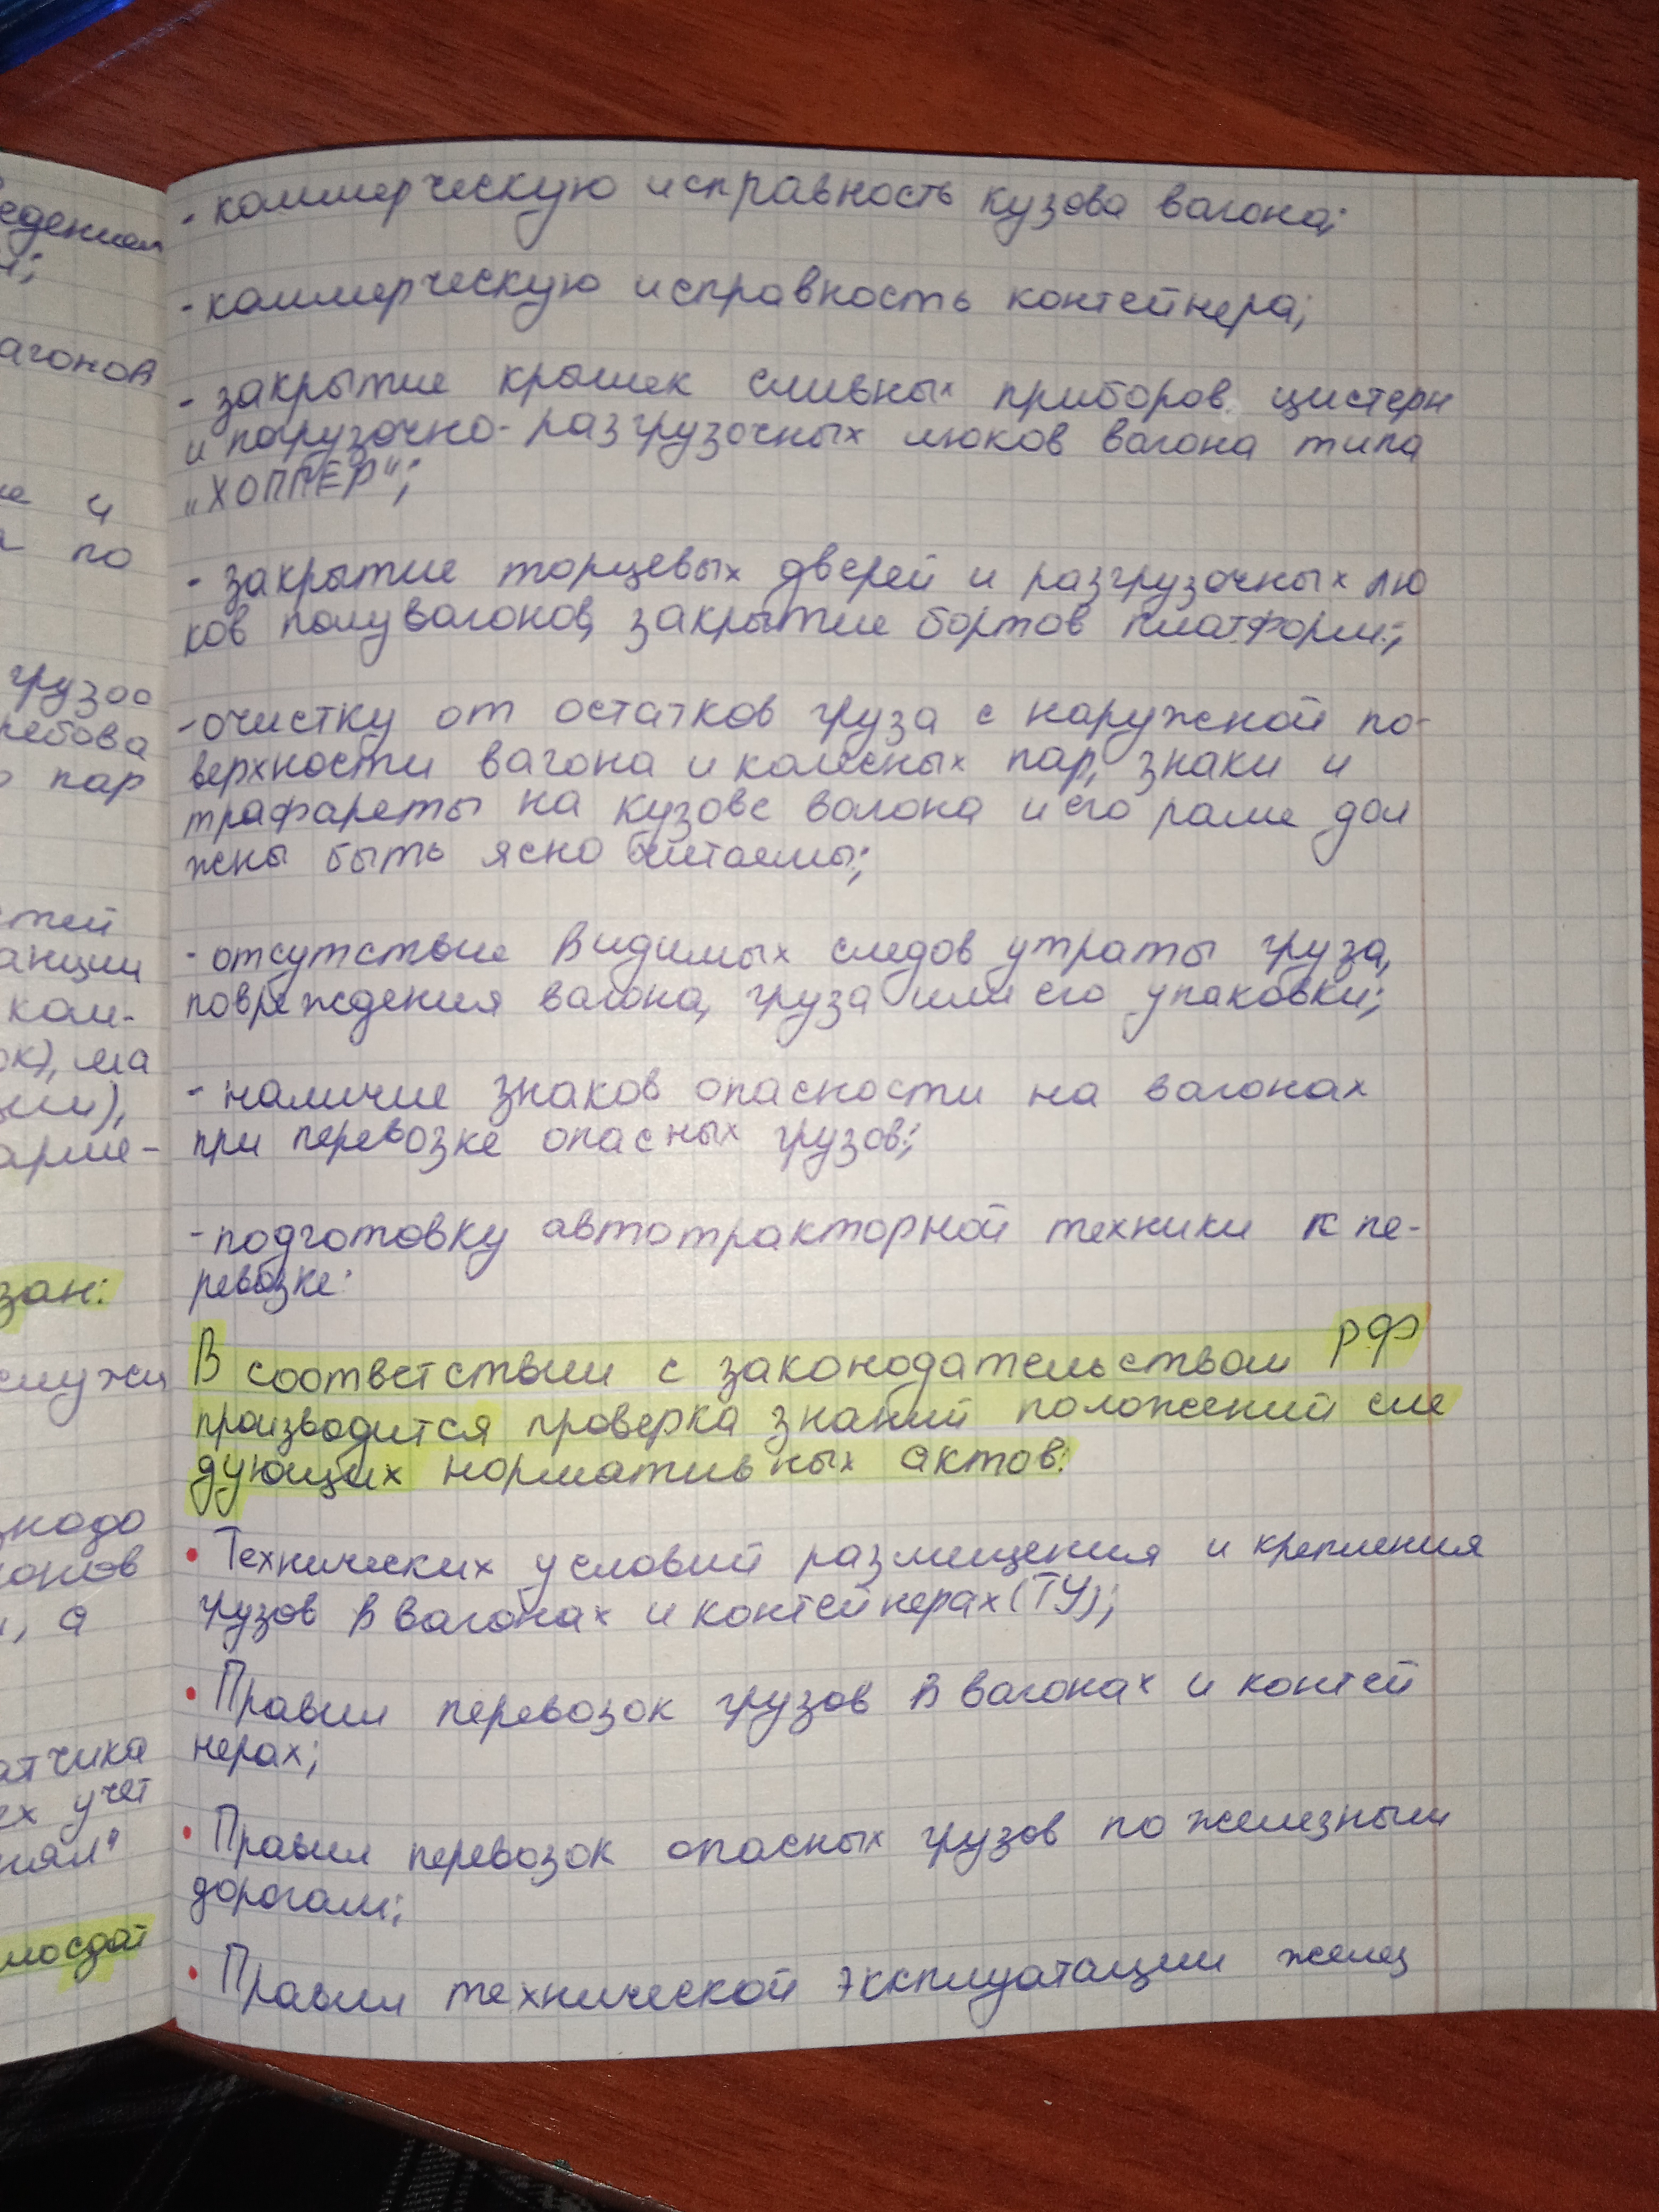 - коммерческую исправность кузова вагона;
- коммерческую исправность контейнера;
- закрытие крышек сливных приборов цистерн
и погрузочно-разгрузочных люков вагона типа
„ХОППЕР“;
- закрытие торцевых дверей и разгрузочных лю
ков полувагонов, закрытие бортов платформ;
- очистку от остатков груза с наружной по-
верхности вагона и колесных пар, знаки и
трафареты на кузове вагона и его раме дол
жны быть ясно читаемы;
- отсутствие видимых следов утраты груза,
повреждения вагона, груза или его упаковки;
- наличие знаков опасности на вагонах
при перевозке опасных грузов;
- подготовку автотракторной техники к пе-
ревозке.
В соответствии с законодательством РФ
производится проверка знаний положений сле
дующих нормативных актов:
• Технических условий размещения и крепления
грузов в вагонах и контейнерах (ТУ);
• Правил перевозок грузов в вагонах и контей
нерах;
• Правил перевозок опасных грузов по железным
дорогам;
• Правил технической эксплуатации желез
агонов
и
по
грузов
пар
ком-
зан:
а
учет